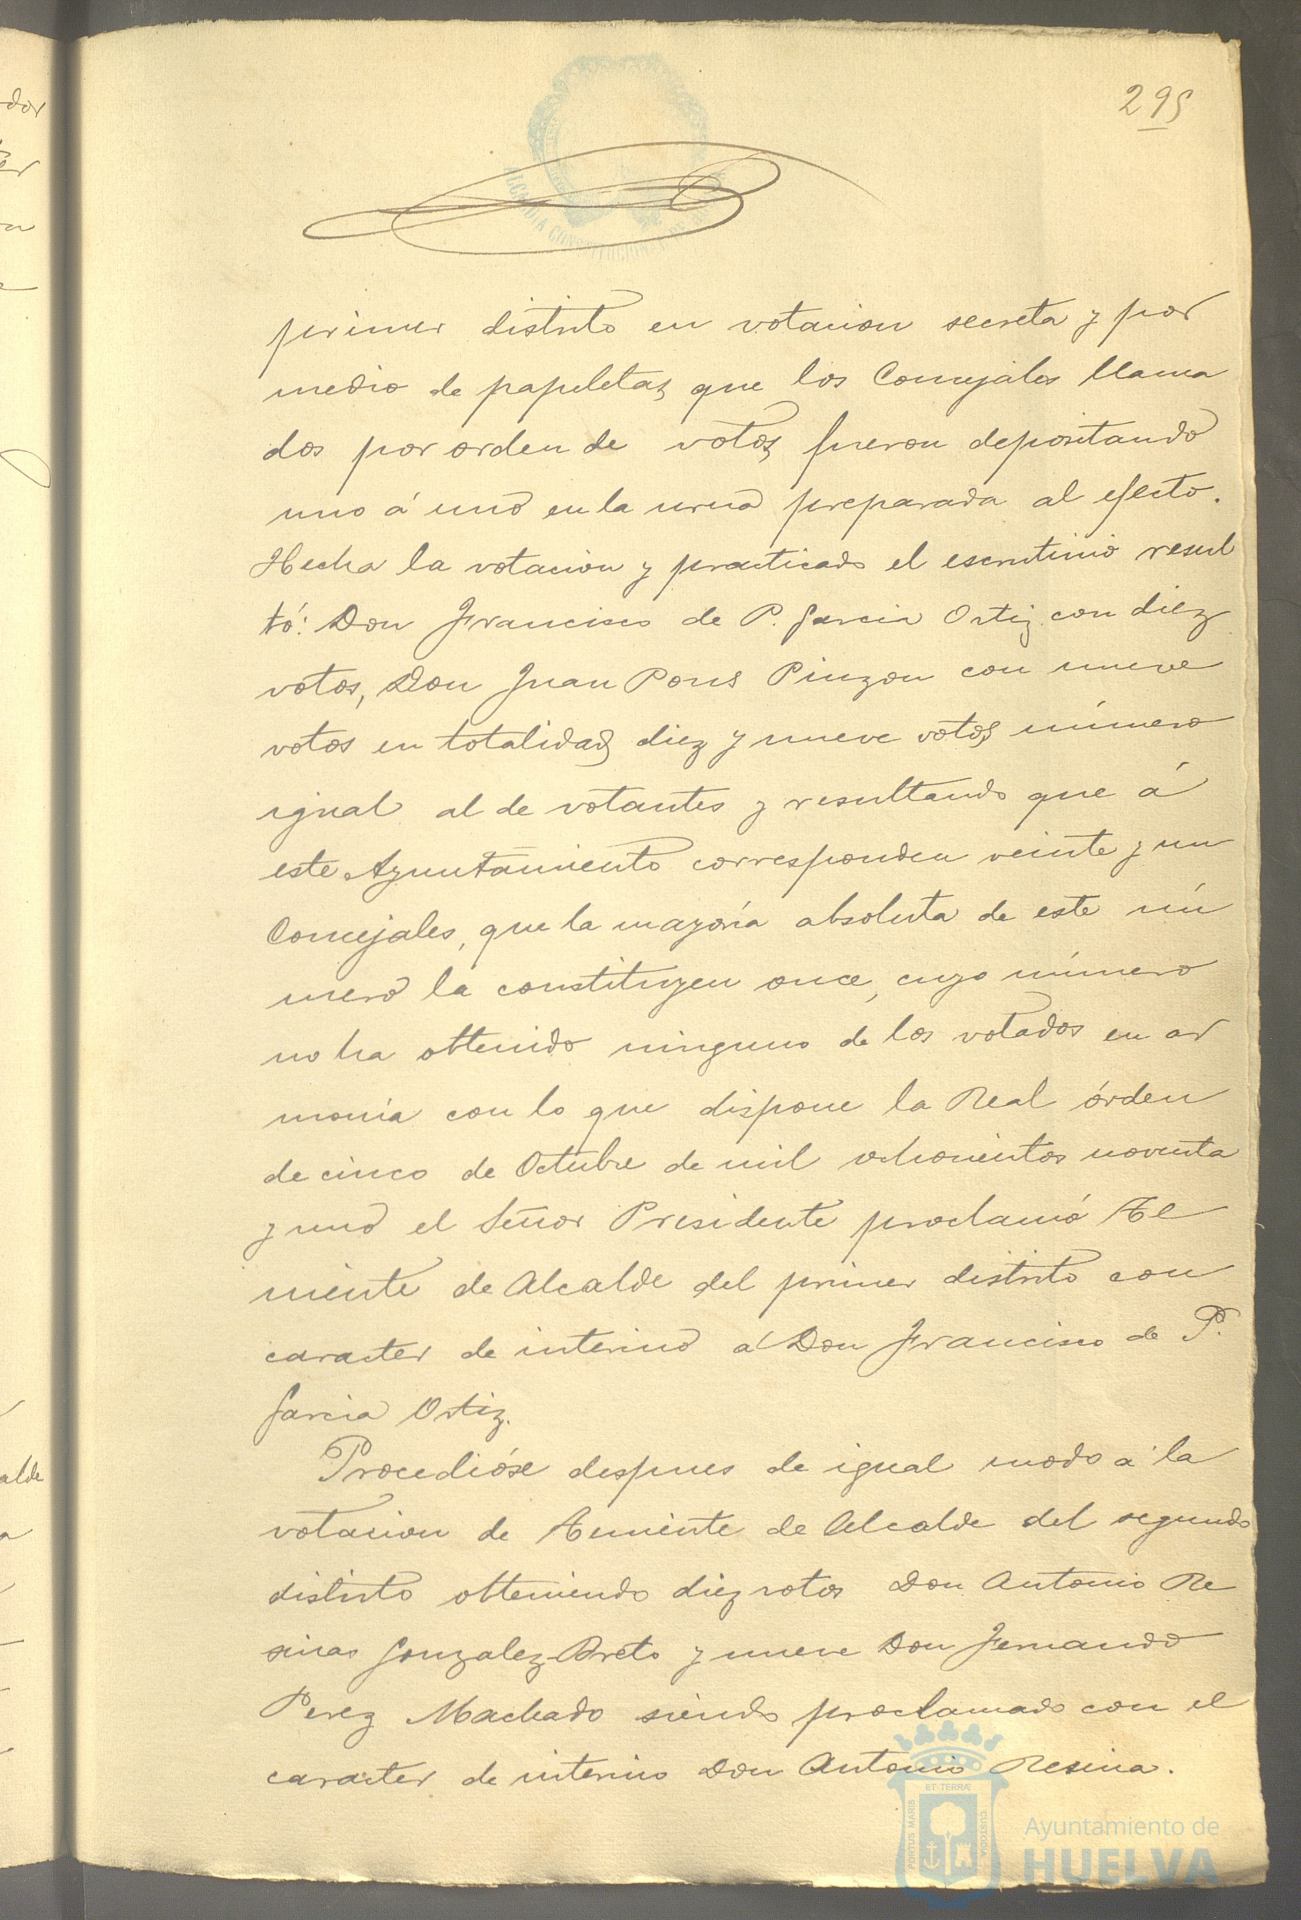 295
primer distrito en votacion secreta y por
medio de papeletas que los Concejales llama
dos por orden de votos fueron depositando
uno á uno en la urna preparada al efecto.
Hecha la votacion y practicado el escrutinio resul
tó: Don Francisco de P. Garcia Ortiz con diez
votos, Don Juan Pons Pinzon con nueve
votos en totalidad diez y nueve votos número
igual al de votantes y resultando que á
este Ayuntamiento corresponden veinte y un
Concejales, que la mayoría absoluta de este nú
mero la constituyen once, cuyo número
no ha obtenido ninguno de los votados en ar
monía con lo que dispone la Real órden
de cinco de Octubre de mil ochocientos noventa
y uno el Señor Presidente proclamó Te
niente de Alcalde del primer distrito con
caracter de interino a Don Francisco de P.
Garcia Ortiz.
Procedióse despues de igual modo a la
votacion de Teniente de Alcalde del segundo
distrito obteniendo diez votos Don Antonio Re
sinas Gonzalez y nueve Don Fernando
Perez Machado siendo proclamado con el
caracter de interino Don Antonio Resina.
ALCALDIA CONSTITUCIONAL DE
PORTUS MARIS ET TERRÆ CUSTODIA
Ayuntamiento de
HUELVA
dor
alde